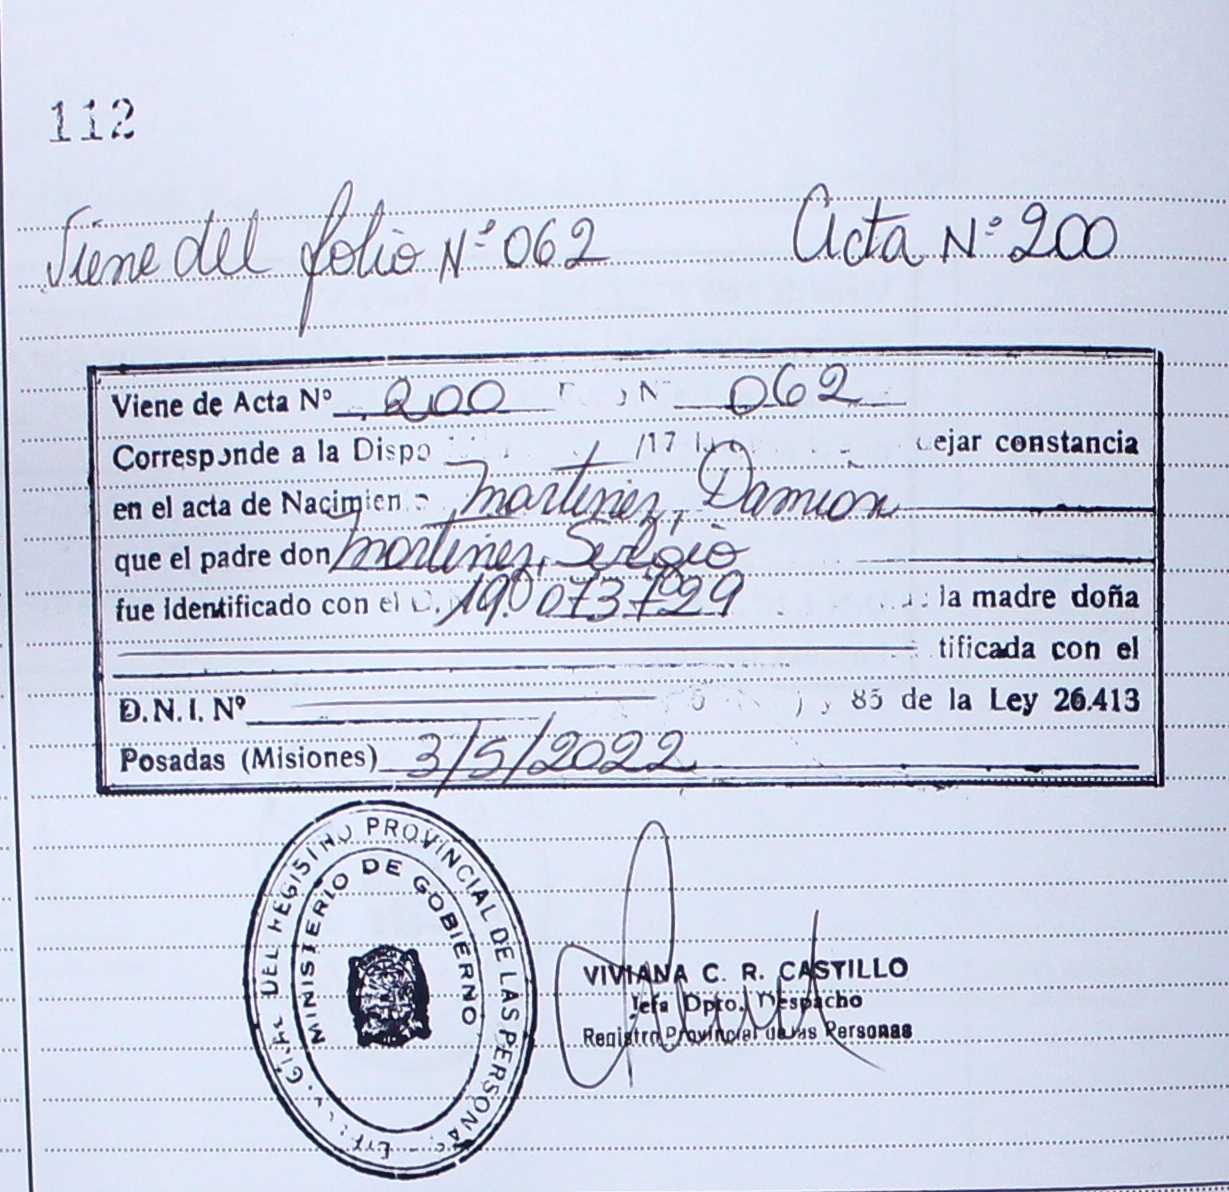 112
Viene del folio Nº 062 Acta Nº 200
Viene de Acta Nº 200 Nº 062
Corresponde a la Dispo /17 dejar constancia
en el acta de Nacimien Martinez, Damion
que el padre don Martinez, Sergio
fue identificado con el la madre doña
tificada con el
D.N.I. Nº 85 de la Ley 26.413
Posadas (Misiones) 3/5/2022
DEL REGISTRO PROVINCIAL DE LAS PERSONAS
MINISTERIO DE GOBIERNO
VIVIANA C. R. CASTILLO
Jefa Dpto. Despacho
Registro Provincial de las Personas